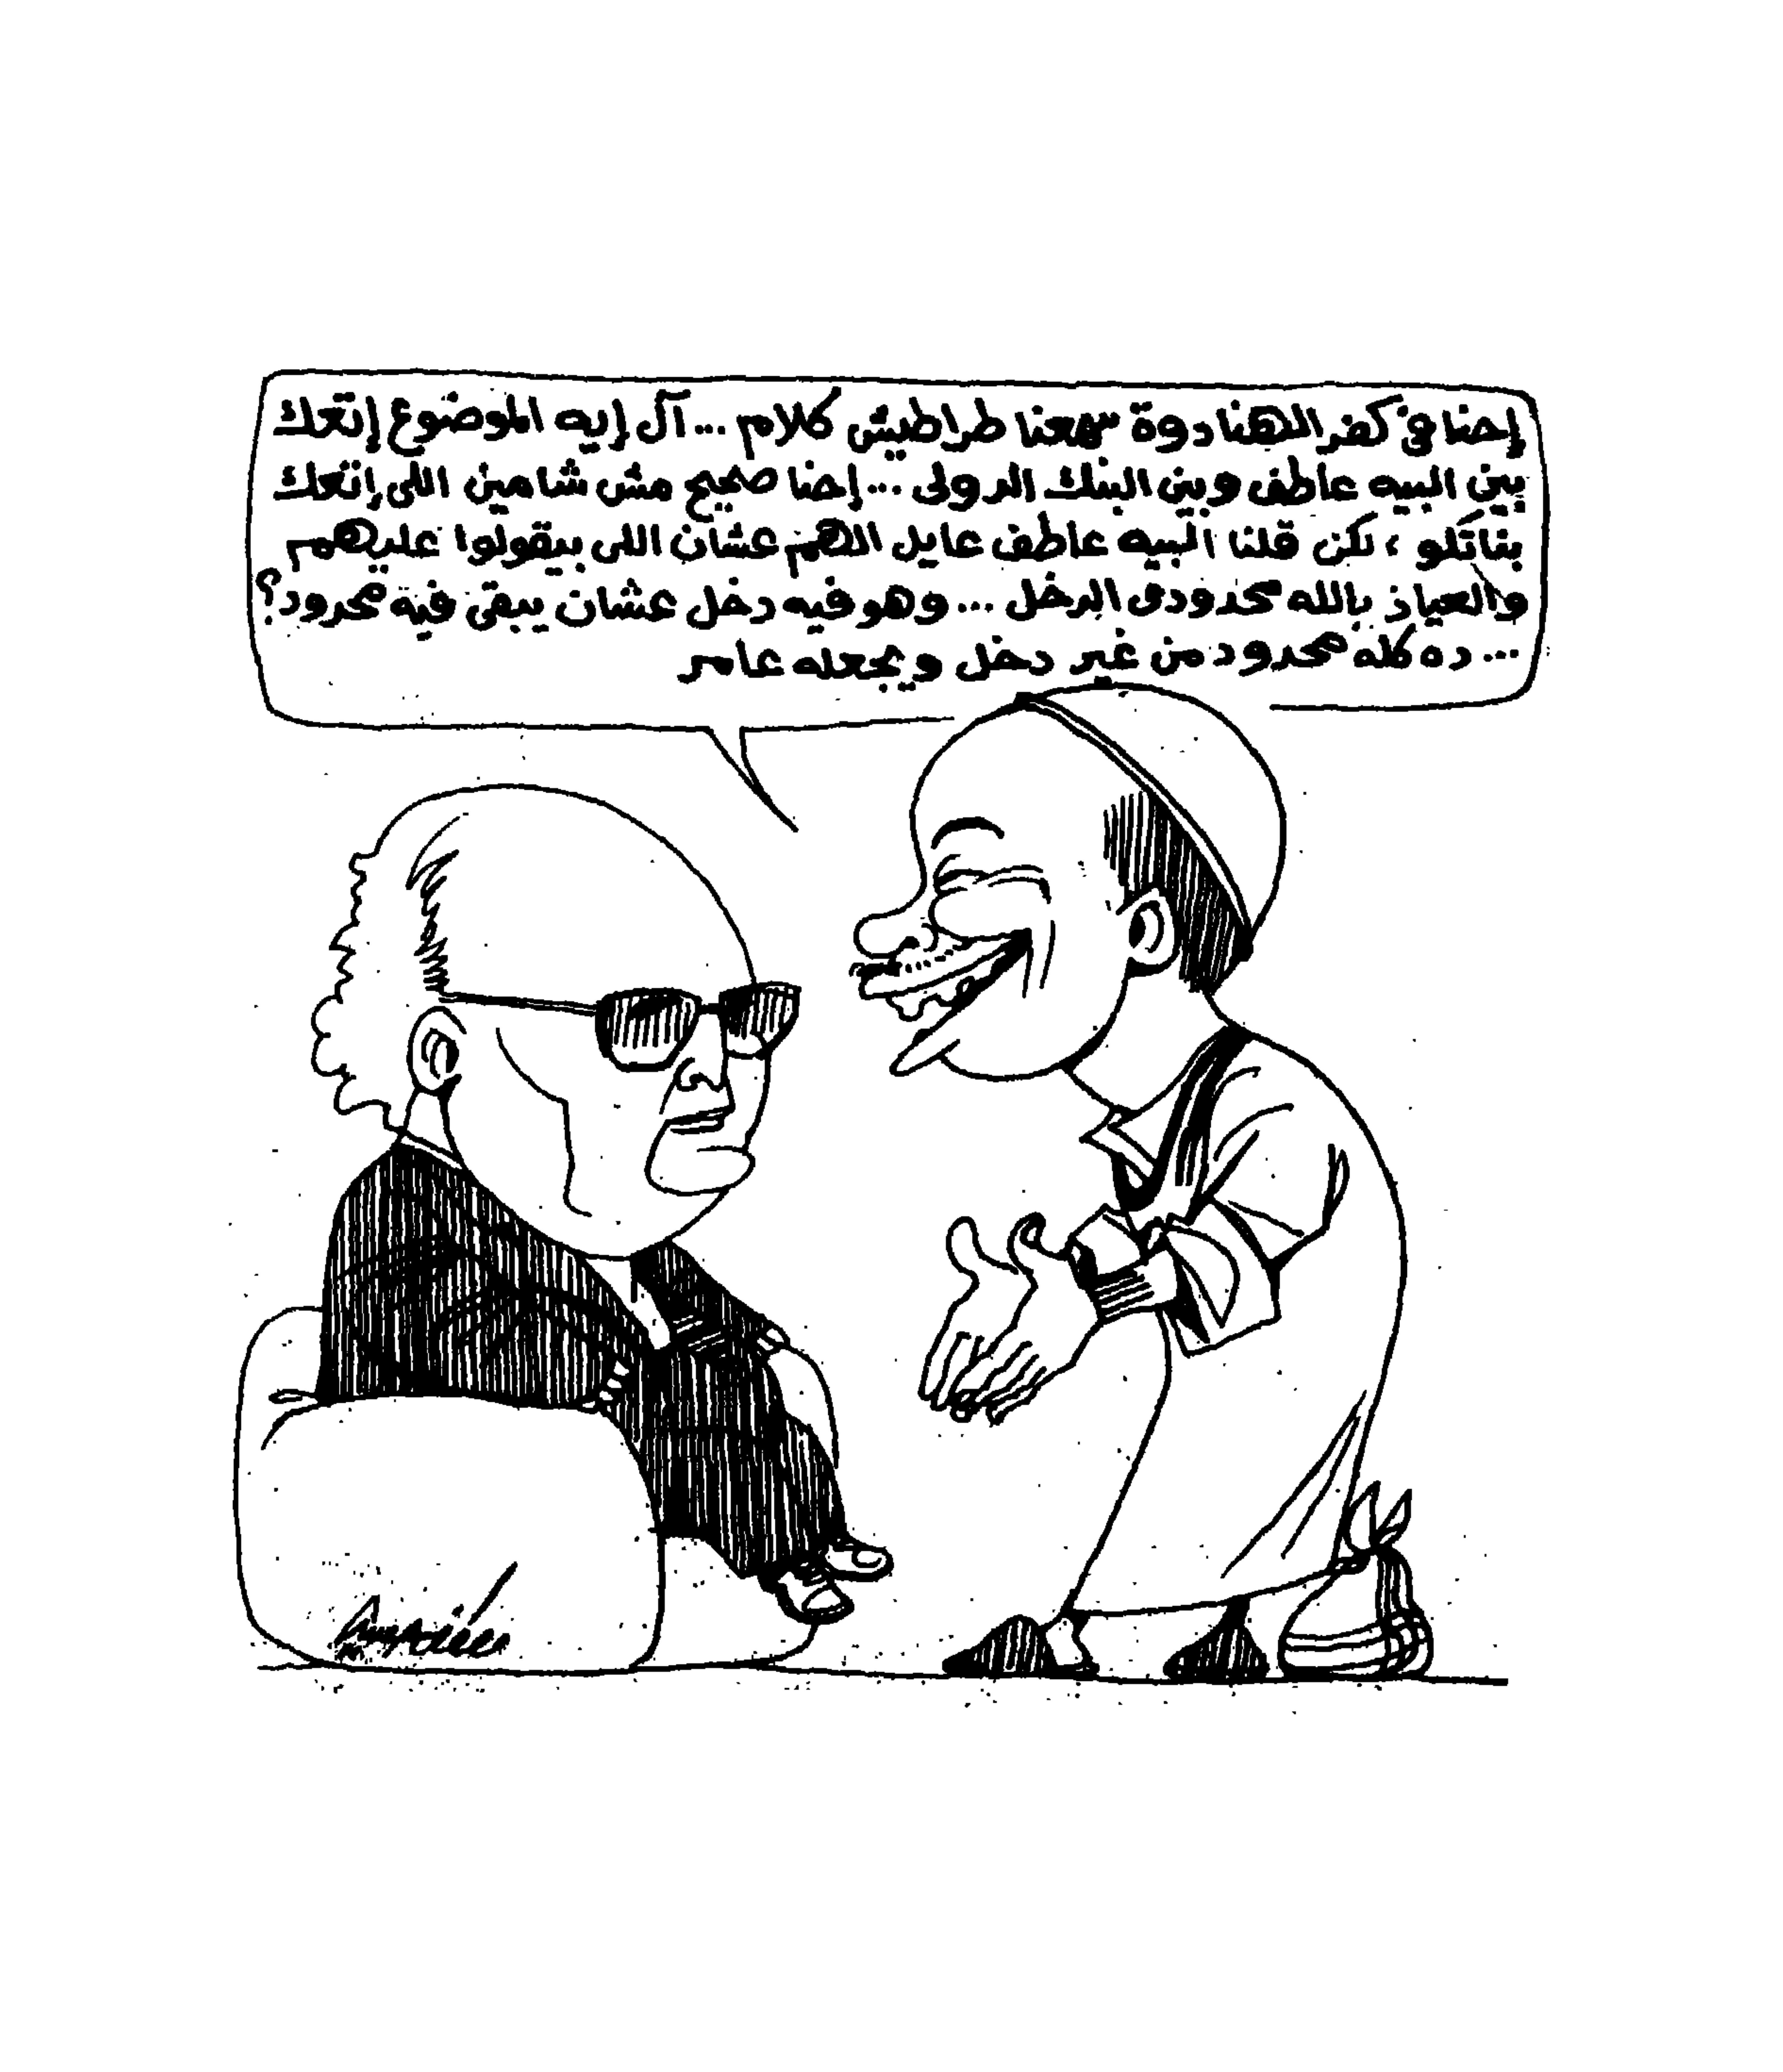 إحنا في كفر الهنادوة سمعنا طراطيش كلام ... آل إيه الموضوع إتعك
بين البيه عاطف وبين البنك الدولى ... إحنا صحيح مش شامين اللى إتعك
بناتلو، لكن قلنا البيه عاطف عايل الهم عشان اللى بيقولوا عليهم
والعياذ بالله محدودى الدخل ... وهو فيه دخل عشان يبقى فيه محدود؟
... ده كله محدود من غير دخل ويجعله عامر